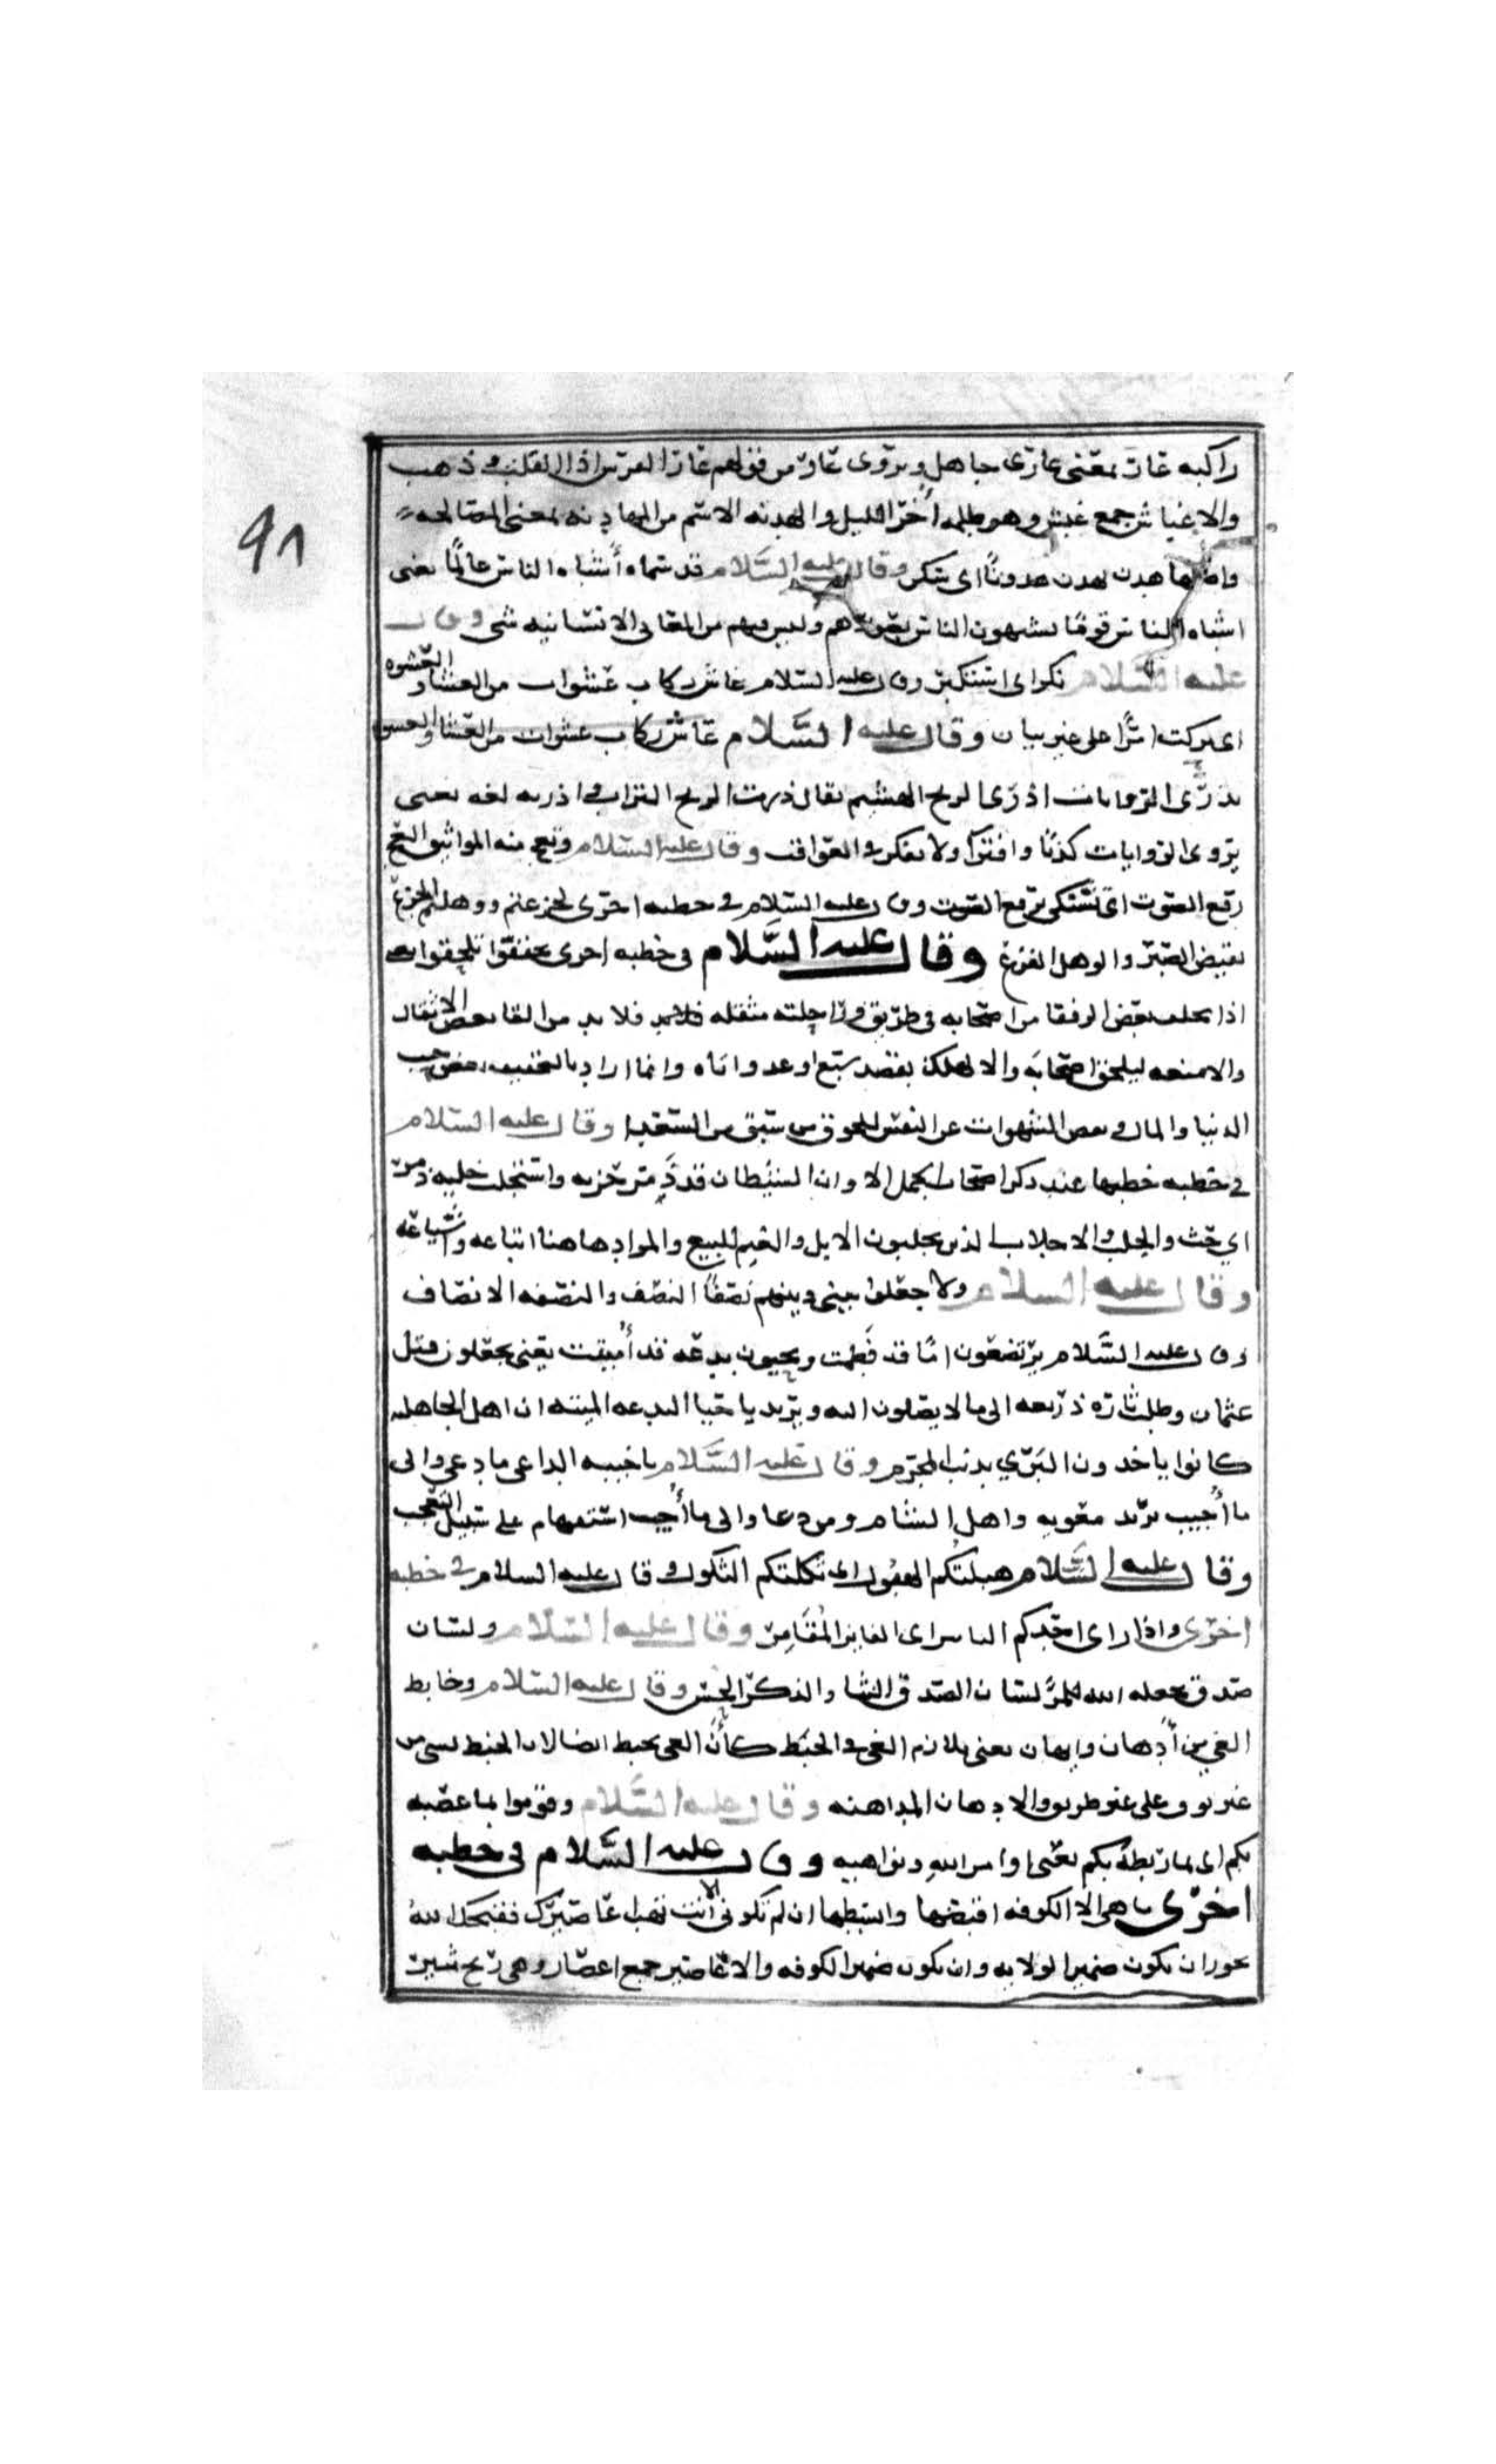 ٩٨
راكبه غار بمعنى عارى جاهل ويروى عار من قولهم عار الفرس اذا انفلت وذهب
والاغباش جمع غبش وهو ظلمه أخر الليل والهدنه الاسم من المهادنه بمعنى المصالحه
هدن يهدن هدونًا اى سكن وقال عليه السَّلام قد سماه أشباه الناس عالمًا يعنى
اشباه الناس قومًا يشبهون الناس وليس فيهم من المعانى الانسانيه شى وقال
عليه السَّلام بكر اى استكثر وقال عليه السلام عاش ركاب عشوات من العشا والعشوه
اى يركب امرًا على غير بيان وقال عليه السَّلام عاش ركاب عشوات من العشا
يذرى الروايات اذرى الريح الهشيم يقال ذرت الريح التراب واذرته لغه يعنى
يروى الروايات كذبًا وافترا ولا يفكر فى العواقب وقال عليه السَّلام وتعج منه المواريث العج
رفع الصوت اى تشتكى برفع الصوت وقال عليه السلام فى خطبه اخرى لجزعتم ووهلتم الجزع
نقيض الصبر والوهل الفزع وقال عليه السَّلام فى خطبه اخرى تخففوا تلحقوا
اذا تخلف بعض الرفقا من اصحابه فى طريق وراحلته مثقله فلا بد من القا بعض الاثقال
والامتعه ليلحق اصحابه والا لهلك بقصد سبع او عدو اتاه وانما اراد بالتخفيف
الدنيا والمال وبعض الشهوات عن النفس للحوق من سبق من السعدا وقال عليه السلام
فى خطبه خطبها عند ذكر اصحاب الجمل الا وان الشيطان قد ذمر حزبه واستجلب خليه ذمر
اي حث والجلب والاجلاب الذين يجلبون الابل والغنم للبيع والمراد هاهنا اتباعه واشياعه
وقال عليه السلام ولا جعلوا بينى وبينهم نصفًا النصف والنصفه الانصاف
وقال عليه السَّلام يرتضعون امًا قد فطمت ويحيون بدعه قد أميتت يعنى يجعلون قتل
عثمان وطلب ثاره ذريعه الى ما لا يقبلون الله ويريد باحيا البدعه الميته ان اهل الجاهليه
كانوا ياخذون البرى بذنب المجرم وقال عليه السَّلام يا خيبه الداعى ما دعى والى
ما أجيب يريد معويه واهل الشام ومن دعا والى ما أجيب استفهام على سبيل التعجب
وقال عليه السَّلام هبلتكم الهبول اى ثكلتكم الثكول وقال عليه السلام فى خطبه
اخرى واذا راى احدكم الياسر اى الفايز المُقَامِر وقال عليه السَّلام ولسان
صدق يجعله الله للمرً لسان الصدق الثنا والذكر الحسن وقال عليه السلام وخابط
الغى من أدهان وايهان يعنى يلازم الغى والخبط كأن الغى يخبط
وعلى غير طريق والادهان المداهنه وقال عليه السَّلام وقوموا بما عصبه
بكم اى بما ربطه بكم يعنى اوامر الله ونواهيه وقال عليه السَّلام فى خطبه
اخرى ما هى الا الكوفه اقبضها وابسطها ان لم تكونى الا أنت تهب اعاصيرك فقبحك الله
يجوز ان يكون ضمير الولايه وان يكون ضمير الكوفه والاعاصير جمع اعصار وهى ريح تثير